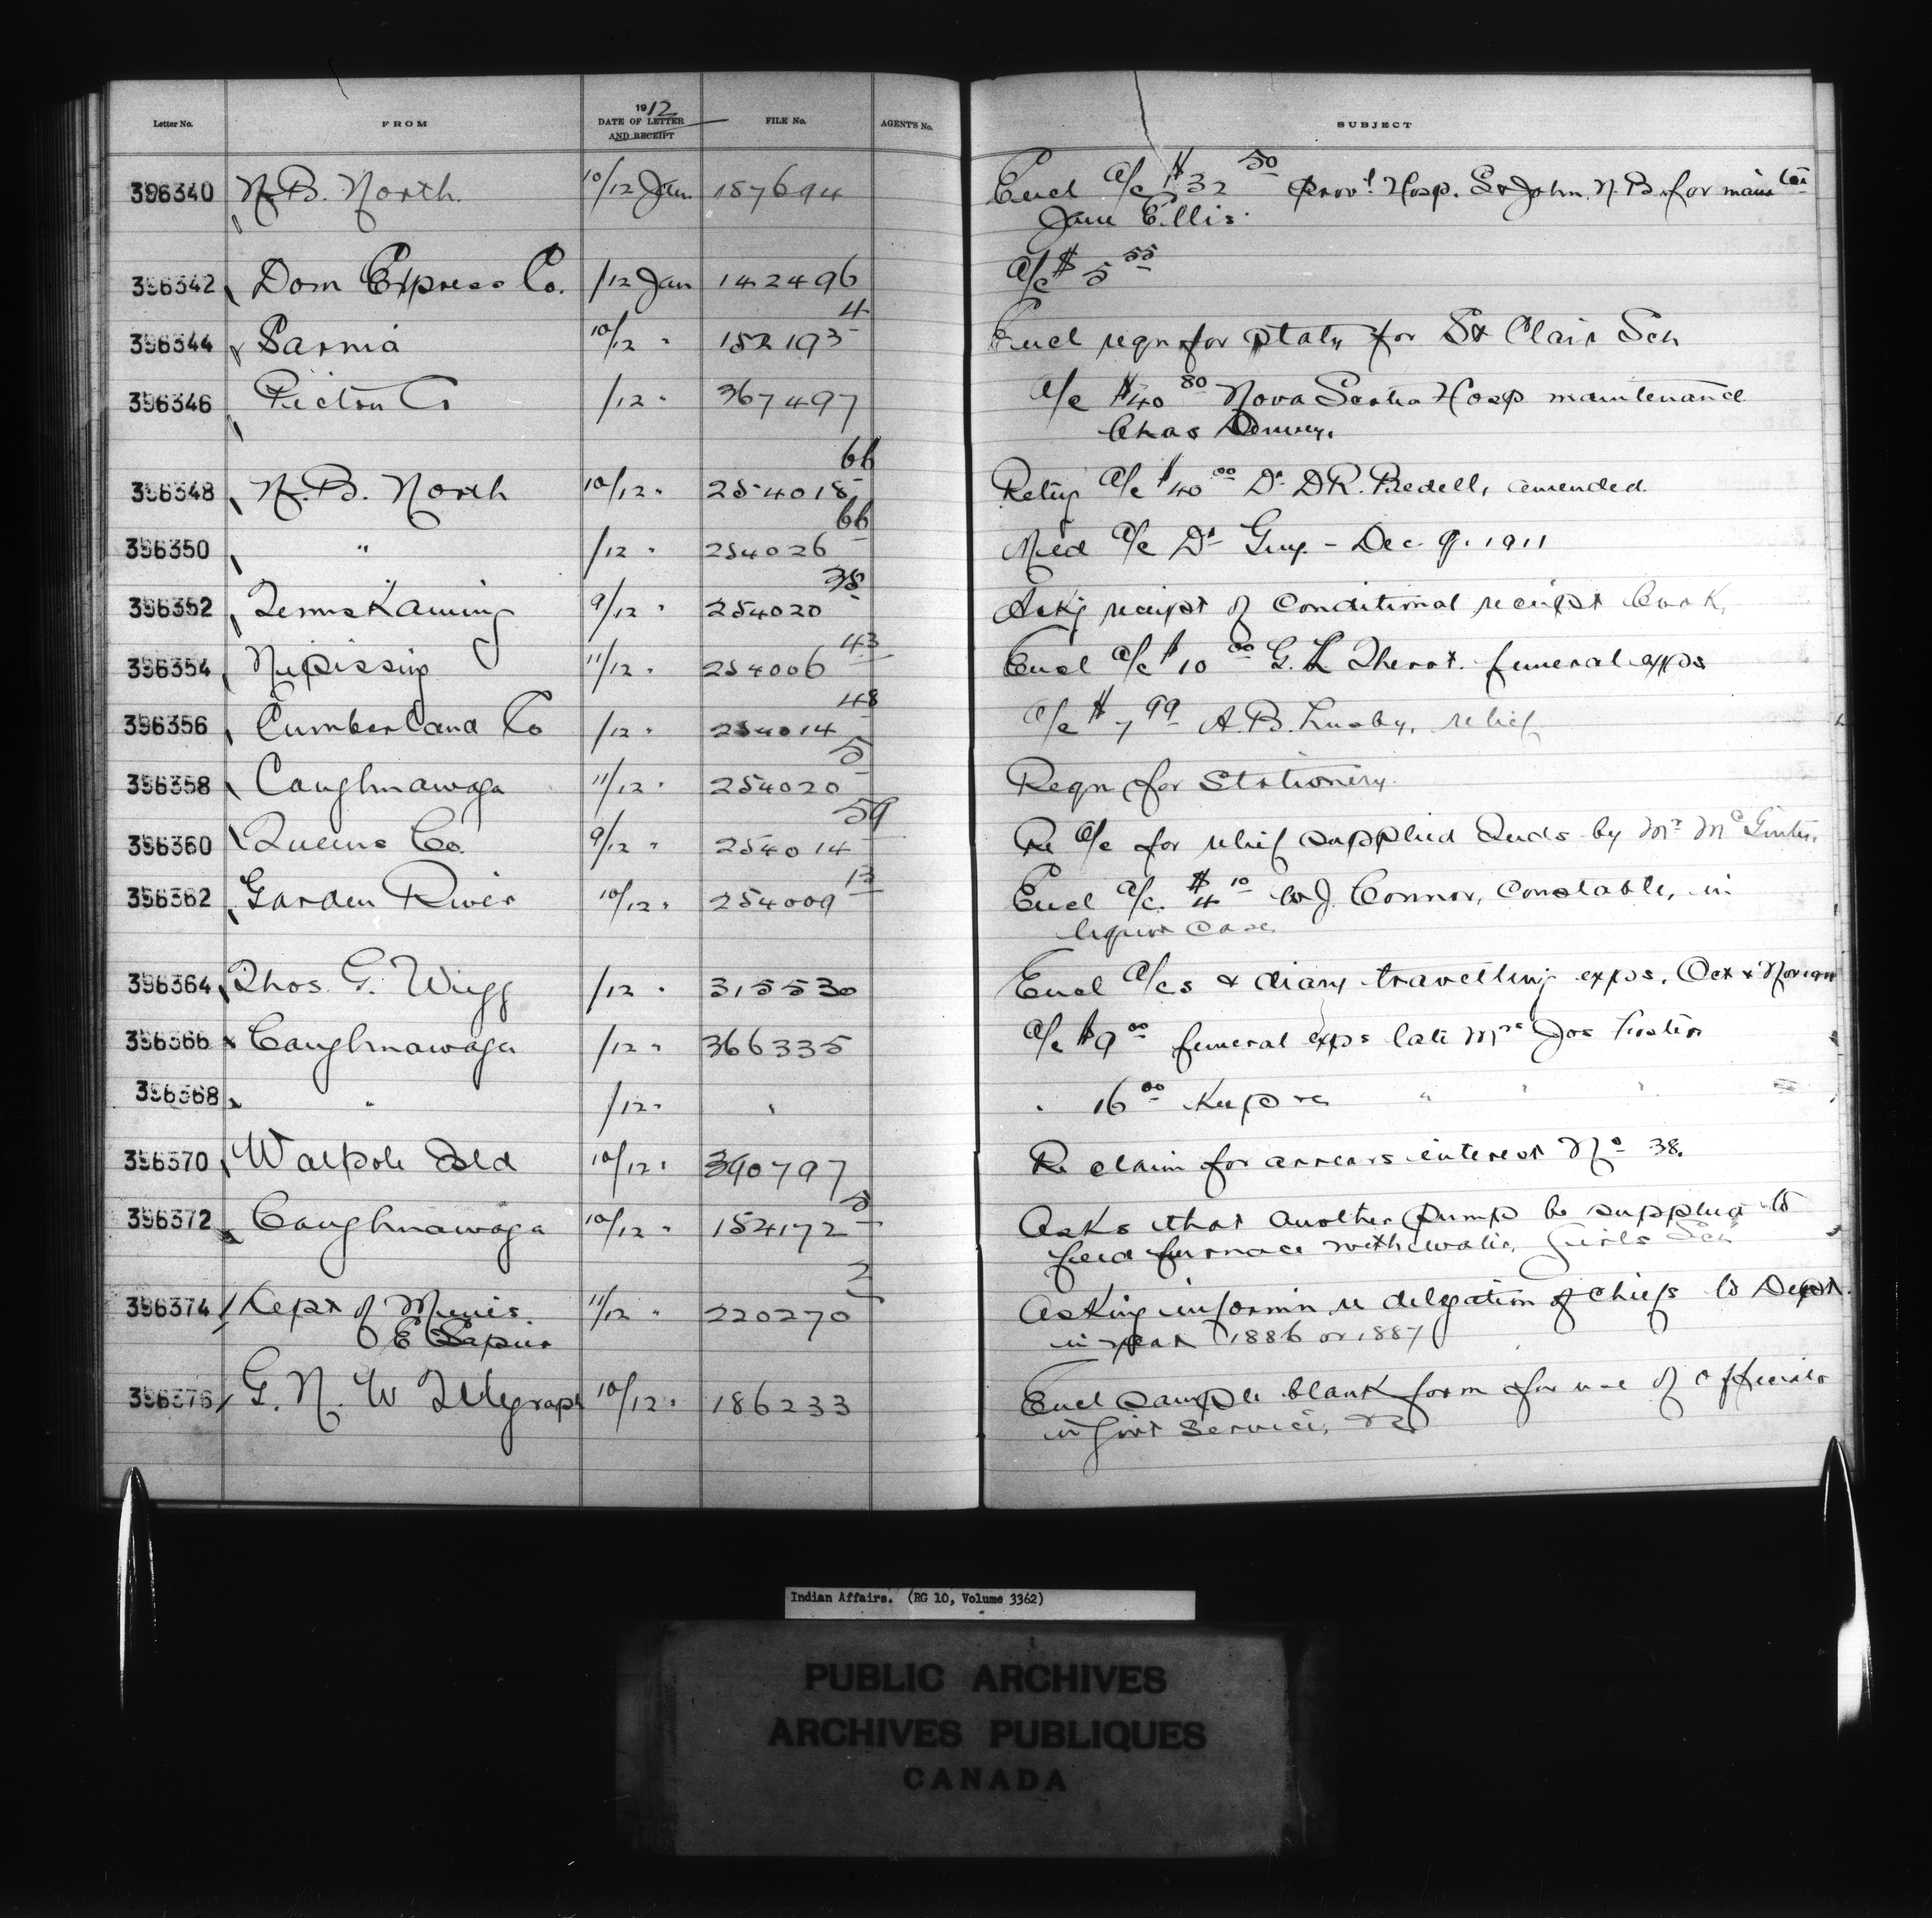 Letter No. FROM 1912 DATE OF LETTER AND RECEIPT FILE No. AGENT'S No. SUBJECT
396340 N.B. North. 10/12 Jan. 187694 Encl a/c $32 50 Prov'l Hosp. St John, N.B. for main
Jane Ellis.
396342 Dom Express Co. /12 Jan 142496 a/c $5 55
396344 Sarnia 10/12 " 152193 4 Encl reqn for staty for St Clair Sch
396346 Pictou Co /12 " 367497 a/c $40 80 Nova Scotia Hosp maintenance
Chas
396348 N.B. North 10/12 " 254018 66 Retg a/c $40 00 Dr D.R. Bedell, amended.
396350 " /12 " 254026 66 Med a/c Dr Guy - Dec. 9. 1911
396352 Temiskaming 9/12 " 254020 38 Ackg receipt of conditional receipt book.
396354 Nipissing 11/12 " 254006 43 Encl a/c $10 00 G. L. funeral exps
396356 Cumberland Co /12 " 254014 48 a/c $7 99 A.B. Lusby, relief
396358 Caughnawaga 11/12 " 254020 5 Reqn for Stationery.
396360 Queens Co. 9/12 " 254014 59 Re a/c for relief supplied Inds by Mr
396362 Garden River 10/12 " 254009 13 Encl a/c. $4 10 W J. Connor, Constable, in
liquor case.
396364 Thos. G. Wigg /12 " 315530 Encl a/cs & diary travelling exps. Oct &
396366 Caughnawaga /12 " 366335 a/c $9 00 funeral exps late Mrs Jos
396368 " /12 " " " 16 00 " " " "
396370 Walpole Isld 10/12 " 390797 Re claim for arrears interest No 38.
396372 Caughnawaga 10/12 " 154172 5 Asks that another pump be supplied to
feed furnace with water, Girls Sch
396374 Dept of Mines 11/12 " 220270 2 Asking informn re delegation of chiefs to Dept.
E Sapir in year 1886 or 1887
396376 G. N. W Telegraph 10/12 " 186233 Encl sample blank form for use of officials
in Govt Service, &c
Indian Affairs. (RG 10, Volume 3362)
PUBLIC ARCHIVES
ARCHIVES PUBLIQUES
CANADA